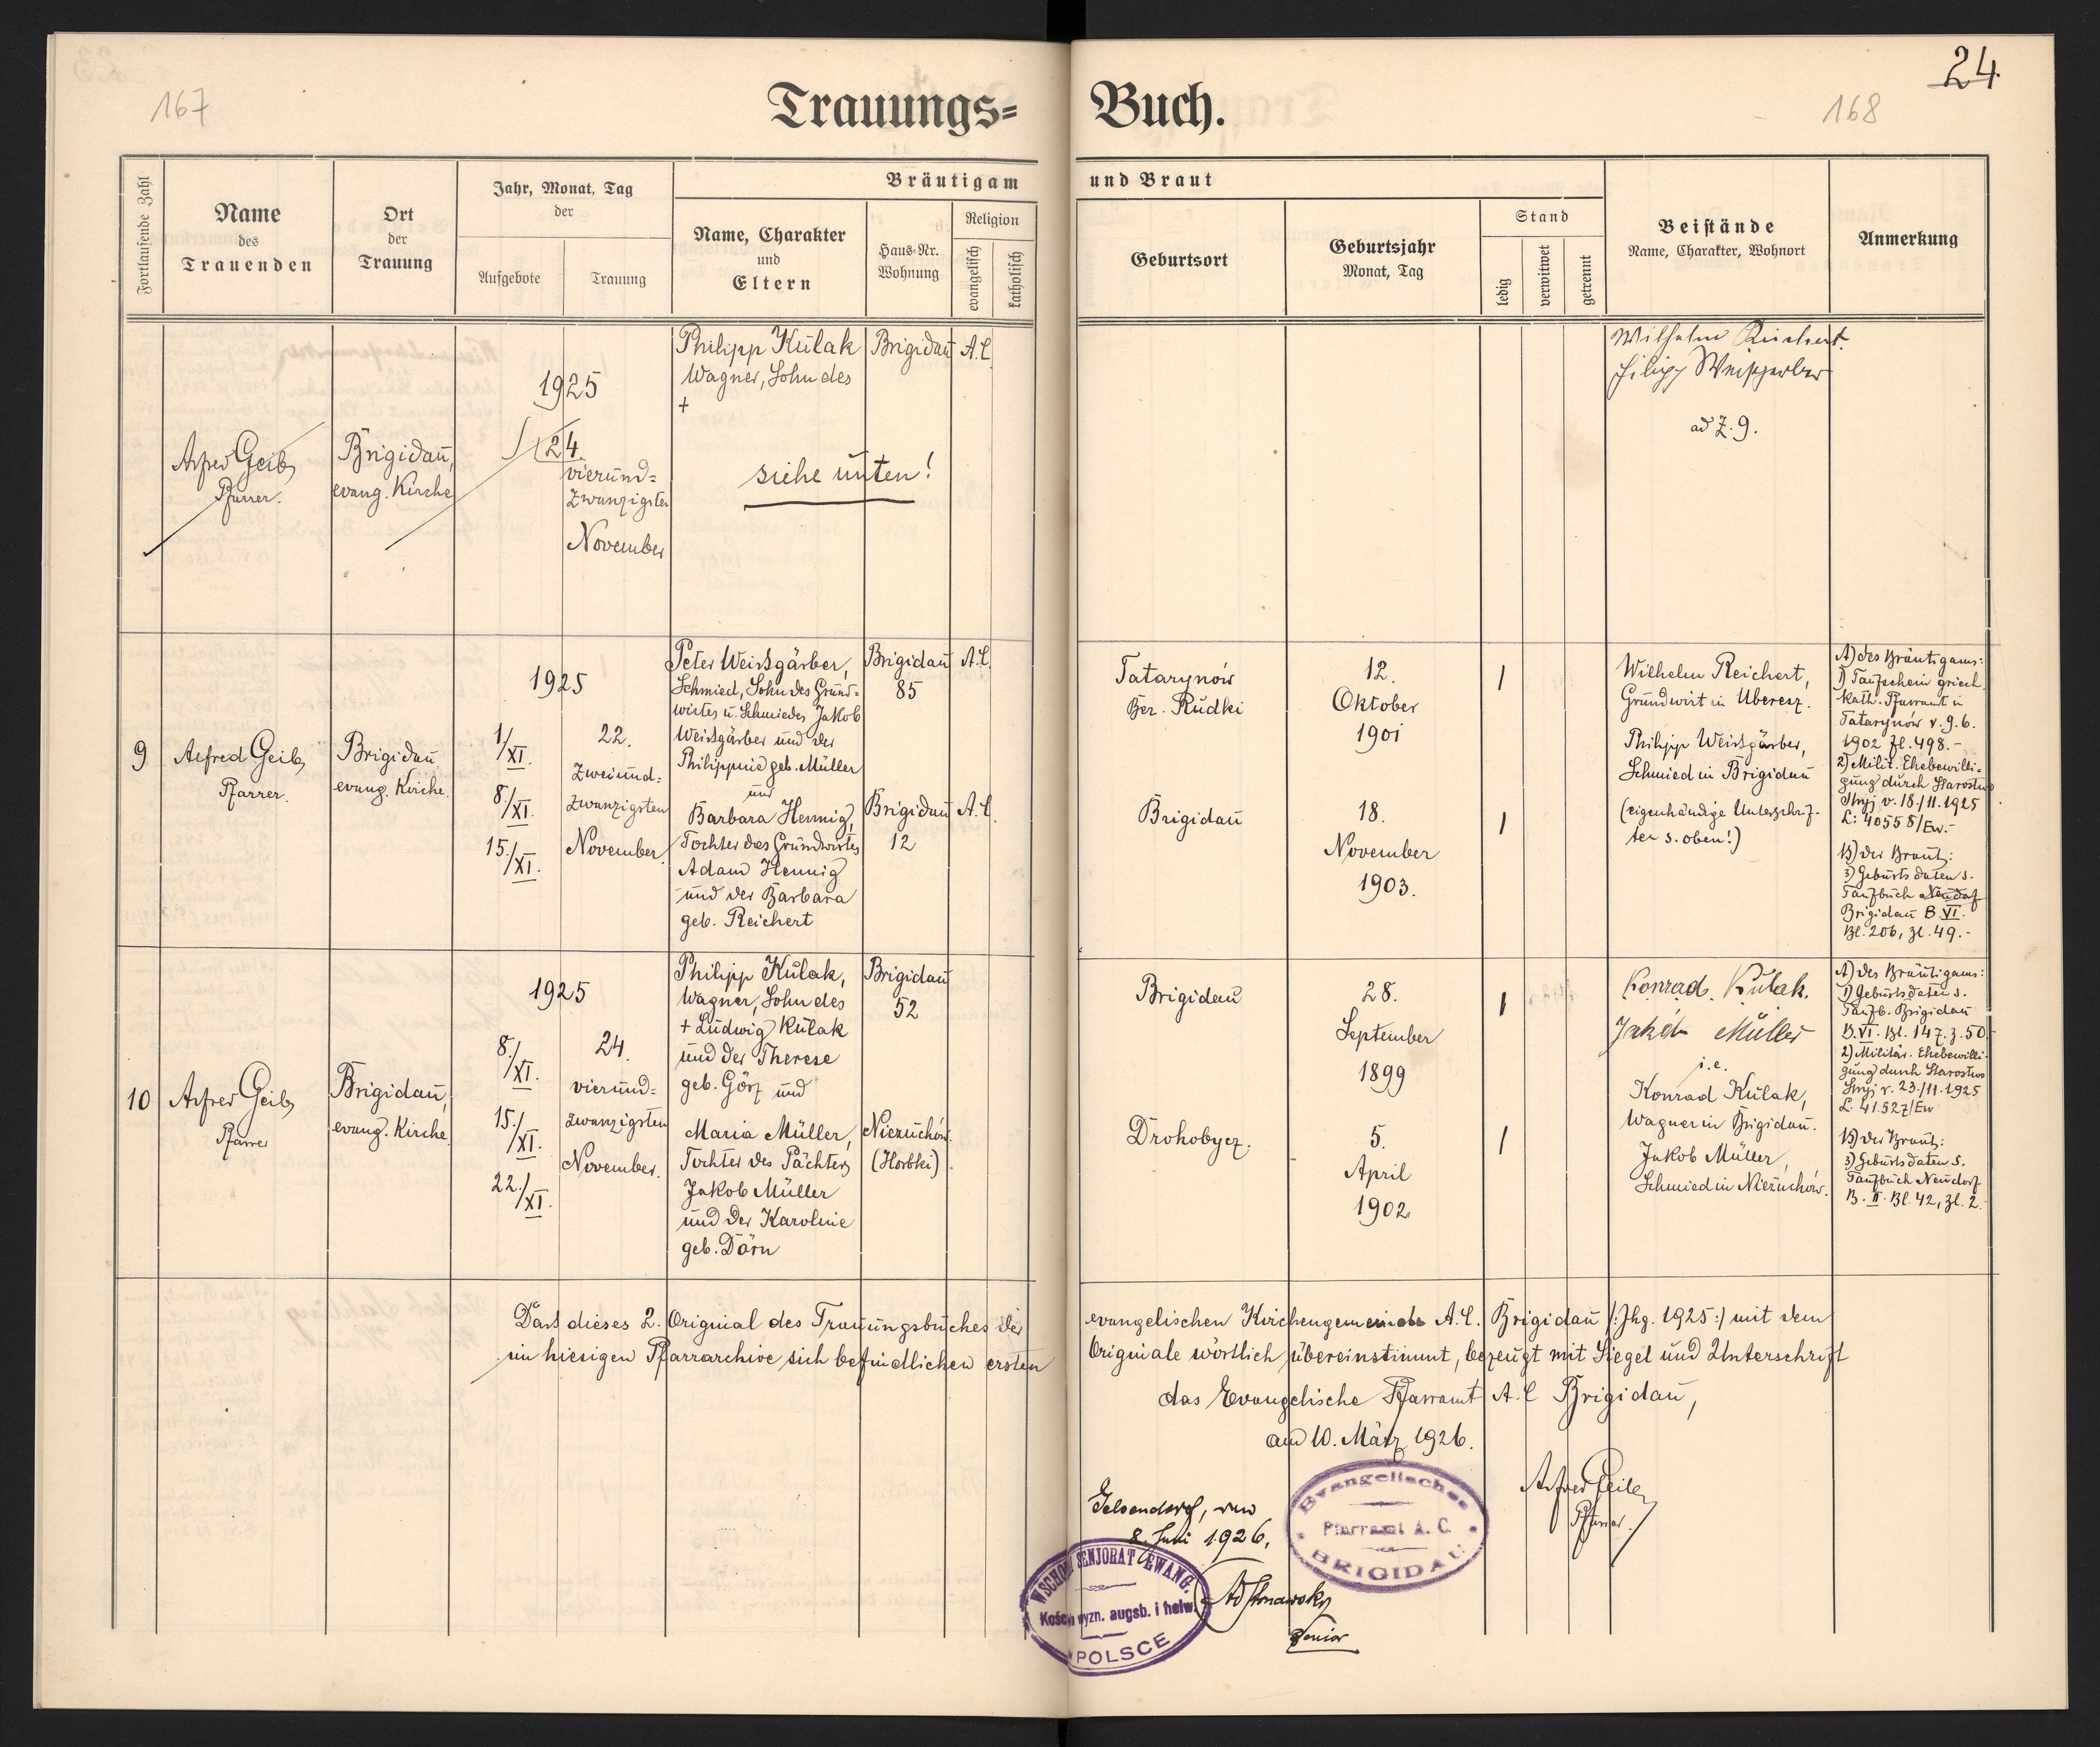 167
24.
168
Trauungs=
Buch.
Fortlaufende Zahl
Name
des
Trauenden
Ort
der
Trauung
Jahr, Monat, Tag
der
Aufgebote
Trauung
Bräutigam
und Braut
Name, Charakter
und
Eltern
Haus=Nr.
Wohnung
Religion
evangelisch
katholisch
Geburtsort
Geburtsjahr
Monat, Tag
Stand
ledig
verwitwet
getrennt
Beistände
Name, Charakter, Wohnort
Anmerkung
Alfred Geib,
Pfarrer.
Brigidau,
evang. Kirche
1925
24.
vierund=
zwanzigsten
November
Philipp Kulak
Wagner, Sohn des
+
Brigidau
A.C.
siehe unten!
Wilhelm Reichert
Filipp Weissgerber
ad Z. 9.
9
Alfred Geib,
Pfarrer.
Brigidau
evang. Kirche.
1925
1/XI.
8./XI.
15./XI.
22.
zweiund=
zwanzigsten
November
Peter Weissgärber,
Schmied, Sohn des Grund=
wirtes u. Schmiedes Jakob
Weissgärber und der
Philippine geb. Müller
und
Barbara Hennig,
Tochter des Grundwirtes
Adam Hennig
und der Barbara
geb. Reichert
Brigidau
85
A.C.
Brigidau
12
A.C.
Tatarynów
Bez. Rudki
Brigidau
12.
Oktober
1901
18.
November
1903.
1
1
Wilhelm Reichert,
Grundwirt in Uberesz.
Philipp Weissgärber,
Schmied in Brigidau
(eigenhändige Unterschrif-
ten s. oben!)
A) des Bräutigams:
1) Taufschein griech.
kath. Pfarramt in
Tatarynów v. 9.6.
1902 Zl. 498.-
2) Milit. Ehebewilli-
gung durch Starostwo
Stryj v. 18/11.1925
L: 40558/Ew.-
B) der Braut:
3) Geburtsdaten s.
Taufbuch Neudorf
Brigidau B. VI.
Bl. 206, Zl. 49.-
10
Alfred Geib,
Pfarrer
Brigidau,
evang. Kirche.
1925
8./XI.
15./XI.
22./XI.
24.
vierund=
zwanzigsten
November.
Philipp Kulak,
Wagner, Sohn des
+ Ludwig Kulak
und der Therese
geb. Görz und
Maria Müller,
Tochter des Pächters
Jakob Müller
und der Karoline
geb. Dörn
Brigidau
52
Niezuchów.
(Horbki)
Brigidau
Drohobycz.
28.
September
1899
5.
April
1902
1
1
Konrad. Kulak.
Jakob Müller
i.e.
Konrad Kulak,
Wagner in Brigidau.
Jakob Müller,
Schmied in Niezuchów.
A) des Bräutigams:
1) Geburtsdaten s.
Taufb. Brigidau
B. VI. Bl. 147. z. 50.
2) Militär. Ehebewilli-
gung durch Starostwo
Stryj v. 23/11.1925
L. 41.527/Ew
B) der Braut:
3) Geburtsdaten s.
Taufbuch Neudorf
B. II. Bl. 42, Zl. 2.
Dass dieses 2. Original des Trauungsbuches der evangelischen Kirchengemeinde A.C. Brigidau /: Jhg. 1925 :/ mit dem
im hiesigen Pfarrarchive sich befindlichen ersten Originale wörtlich übereinstimmt, bezeugt mit Siegel und Unterschrift
das Evangelische Pfarramt A.C. Brigidau,
am 10. März 1926.
Alfred Geib,
Pfarrer.
Evangelisches
Pfarramt A. C.
BRIGIDAU
Gelsendorf, den
8. Juni 1926.
WSCHOD. SENJORAT EWANG.
Kościoła wyzn. augsb. i helw.
POLSCE
Senior